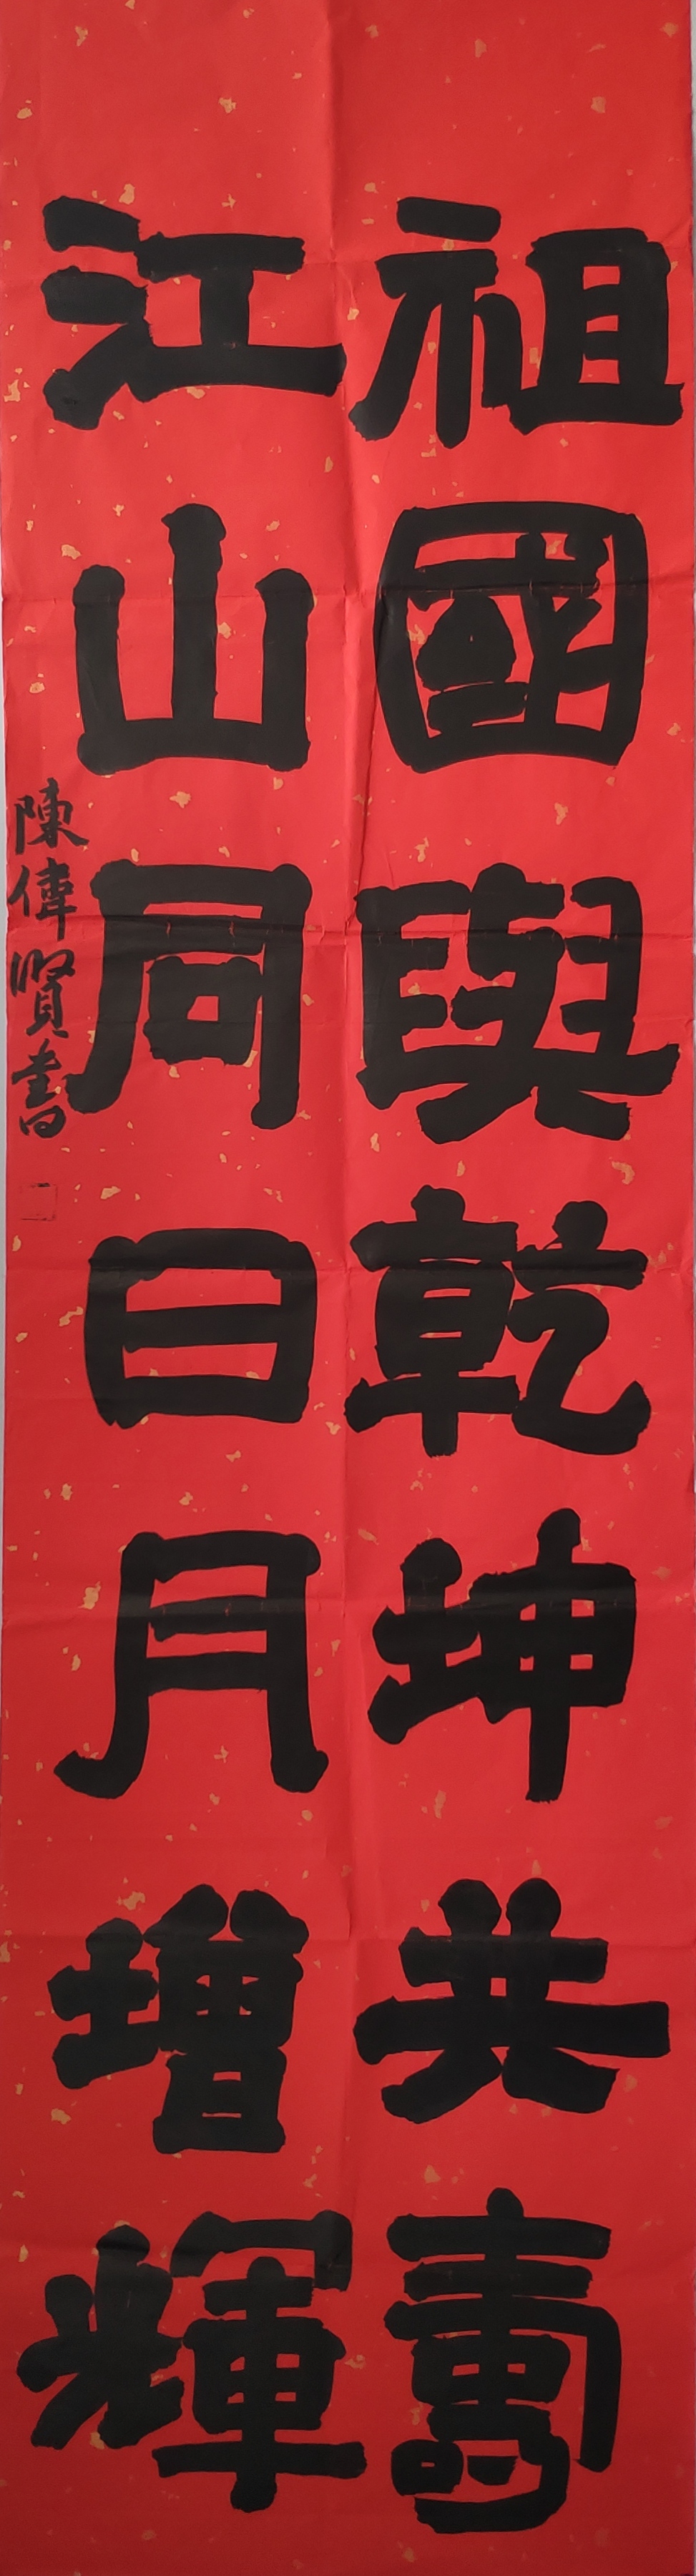 祖國與乾坤共壽
江山同日月增輝
陳偉賢書